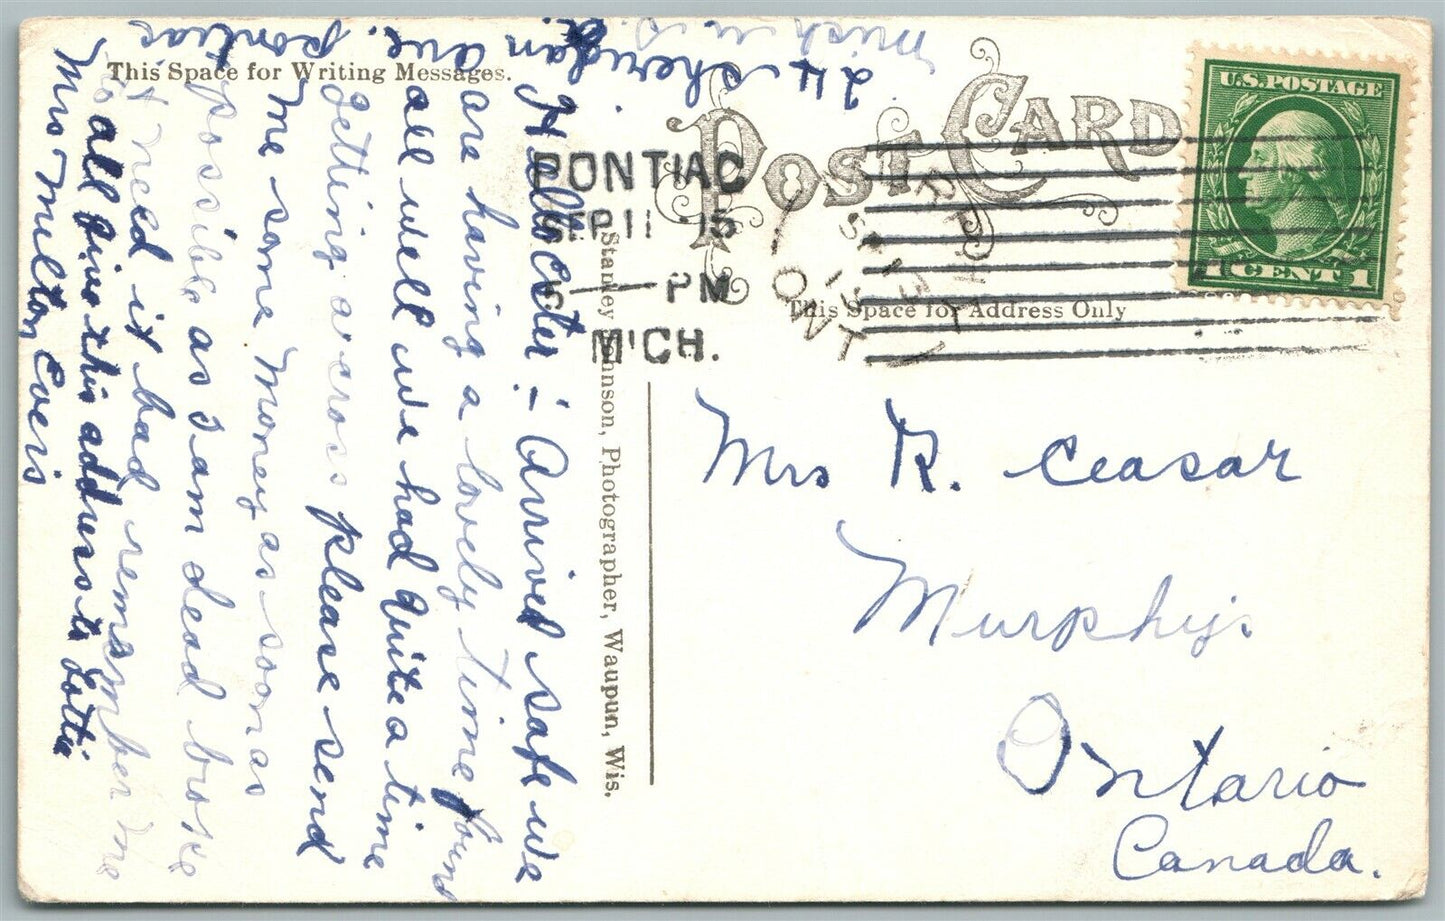 This Space for Writing Messages.
POST CARD
U.S. POSTAGE
1 CENT 1
PONTIAC
SEP 11 '15
PM
MICH.
ONT
This Space for Address Only
Stanley Johnson, Photographer, Waupun, Wis.
24 Sheridan ave. Pontiac
Mich U.S.a.
Hello Ester :- Arrived safe we
are having a lovely time found
all well we had quite a time
getting across please send
me some money as soon as
possible as I am dead broke
& need it bad remember me
to all give this address to Lottie
Mrs Milton Everis
Mrs R. Ceasar
Murphy's
Ontario
Canada.